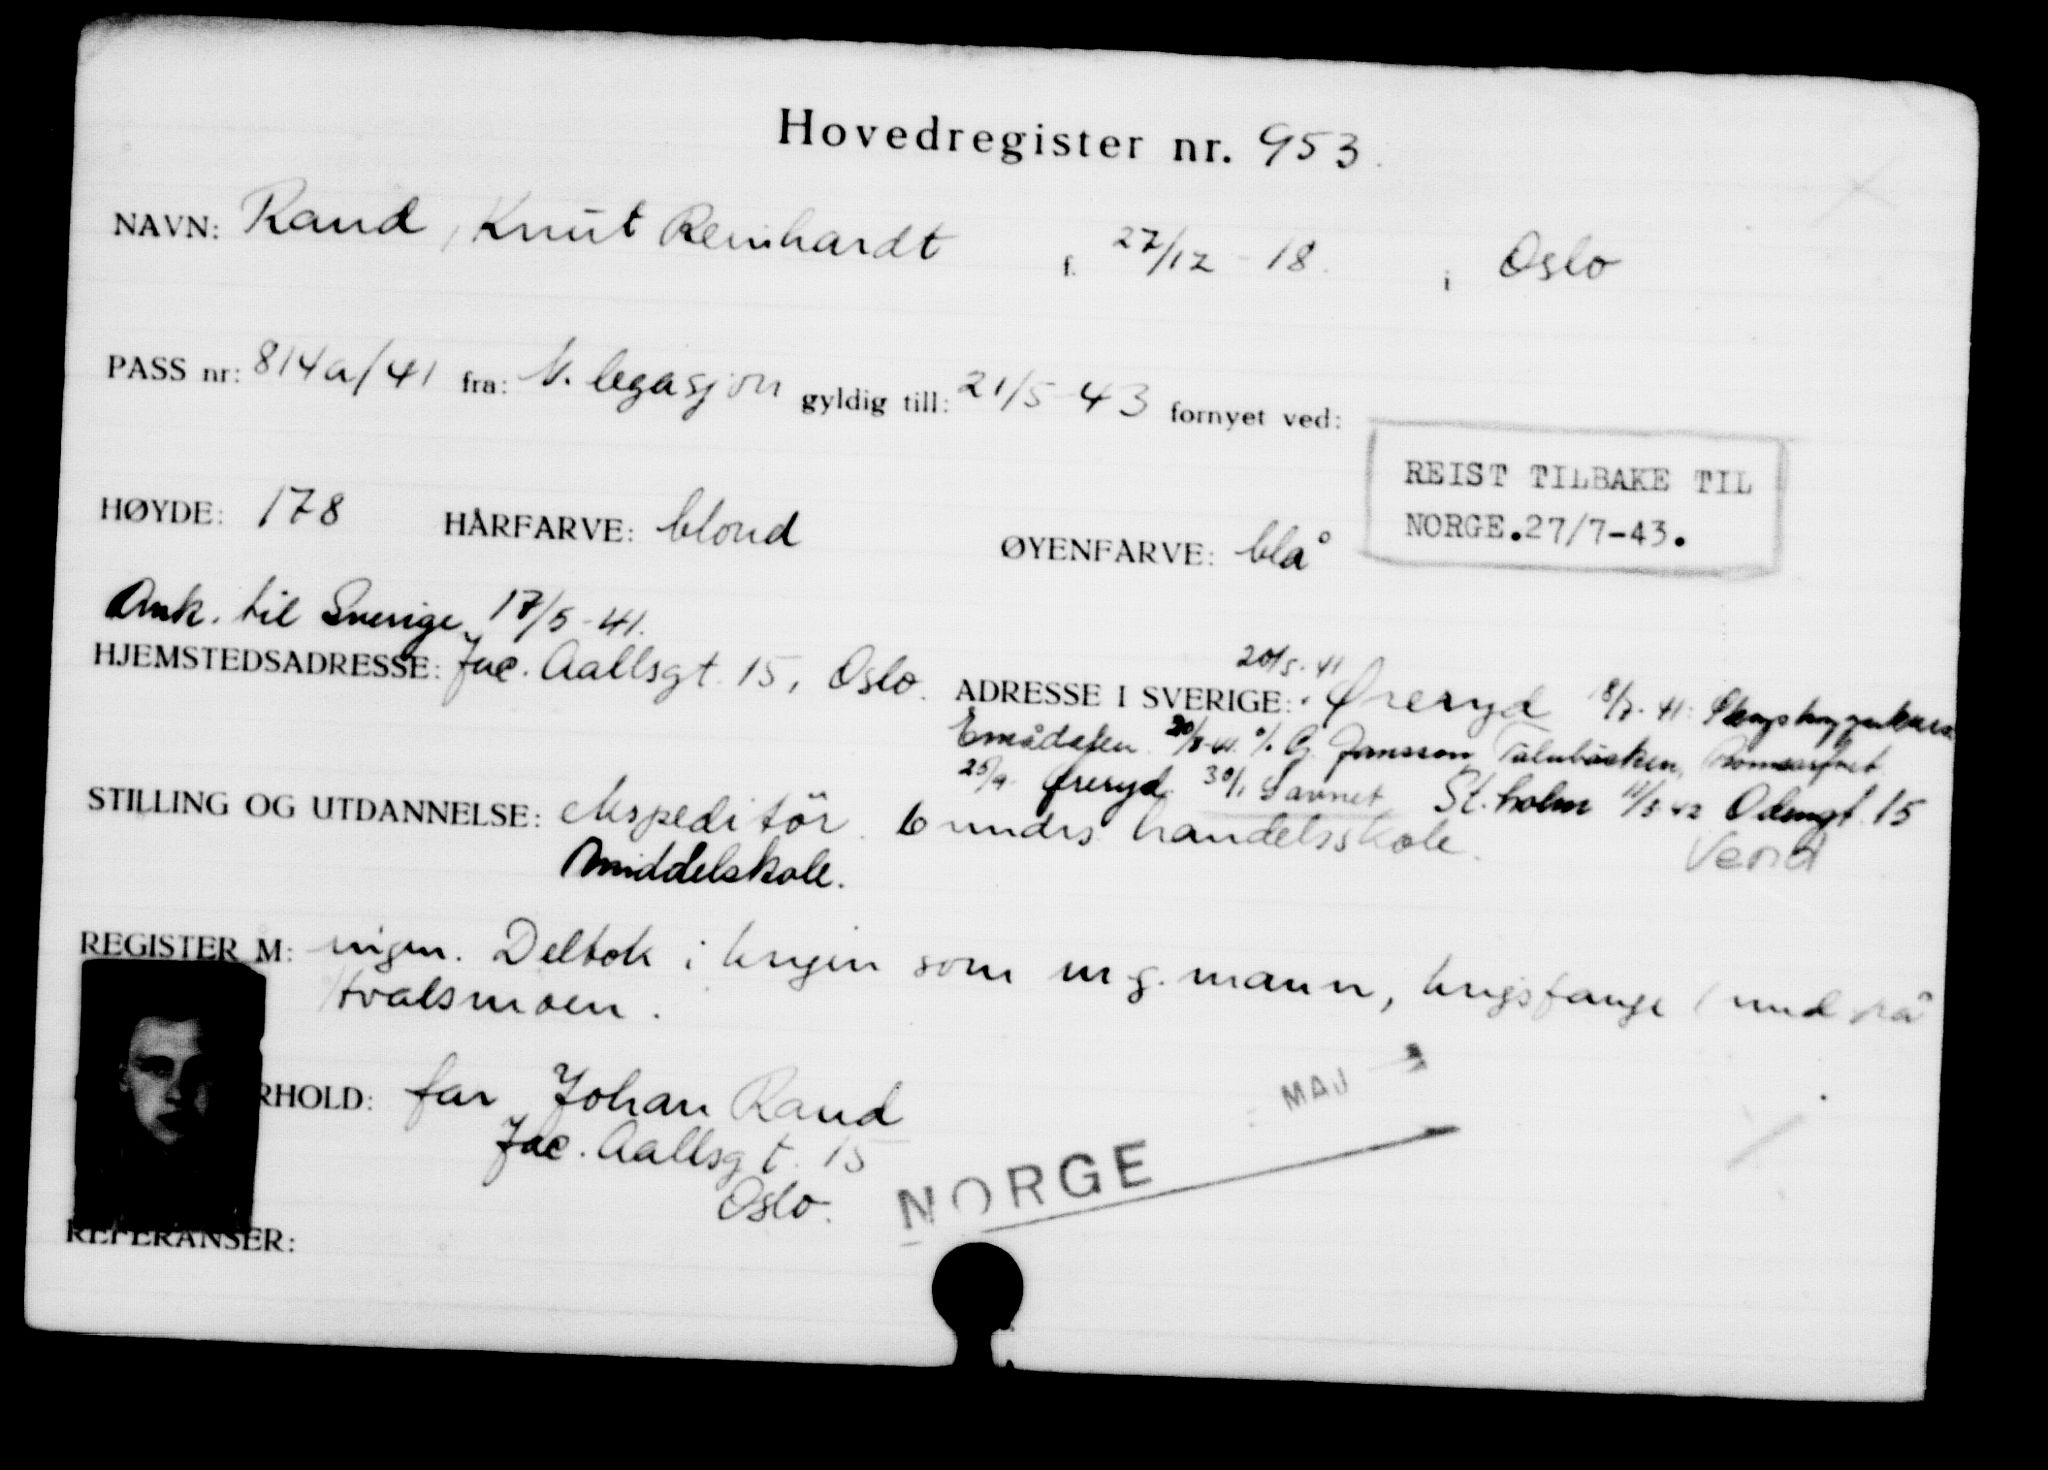 Hovedregister nr. 953.
NAVN: Rand, Knut Reinhardt f. 27/12 - 18. i Oslo
PASS nr: 814a/41 fra: N. legasjon gyldig till: 21/5-43 fornyet ved:
REIST TILBAKE TIL
NORGE.27/7-43.
HØYDE: 178 HÅRFARVE: blond ØYENFARVE: blå
Ank. til Sverige 17/5-41.
HJEMSTEDSADRESSE: Jac. Aallsgt. 15, Oslo. ADRESSE I SVERIGE: 20/5-41 Øreryd 18/7-41:
Emådalen c/o G. Jansson
25/9. Øreryd. 30/1 Savnet St.holm 11/5-42 Odengt. 15
STILLING OG UTDANNELSE: ekspeditör. 6 mndrs handelsskole. Vend
Middelskole.
REGISTER M: ingen. Deltok i krigen som m.g. mann, krigsfange 1 mnd på
Hvalsmoen.
RHOLD: far Johan Rand
Jac. Aallsgt. 15
Oslo.
MAJ
NORGE
REFERANSER: